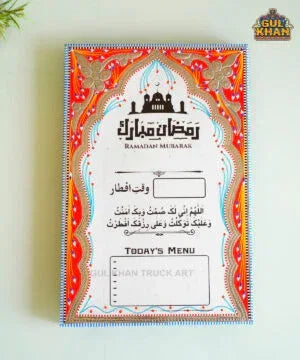 GUL KHAN
رمضان مبارك
RAMADAN MUBARAK
وقتِ افطار
اَللّٰهُمَّ اِنِّی لَکَ صُمْتُ وَبِکَ اٰمَنْتُ
وَعَلَيْکَ تَوَکَّلْتُ وَعَلٰی رِزْقِکَ اَفْطَرْتُ
TODAY'S MENU
GUL KHAN TRUCK ART